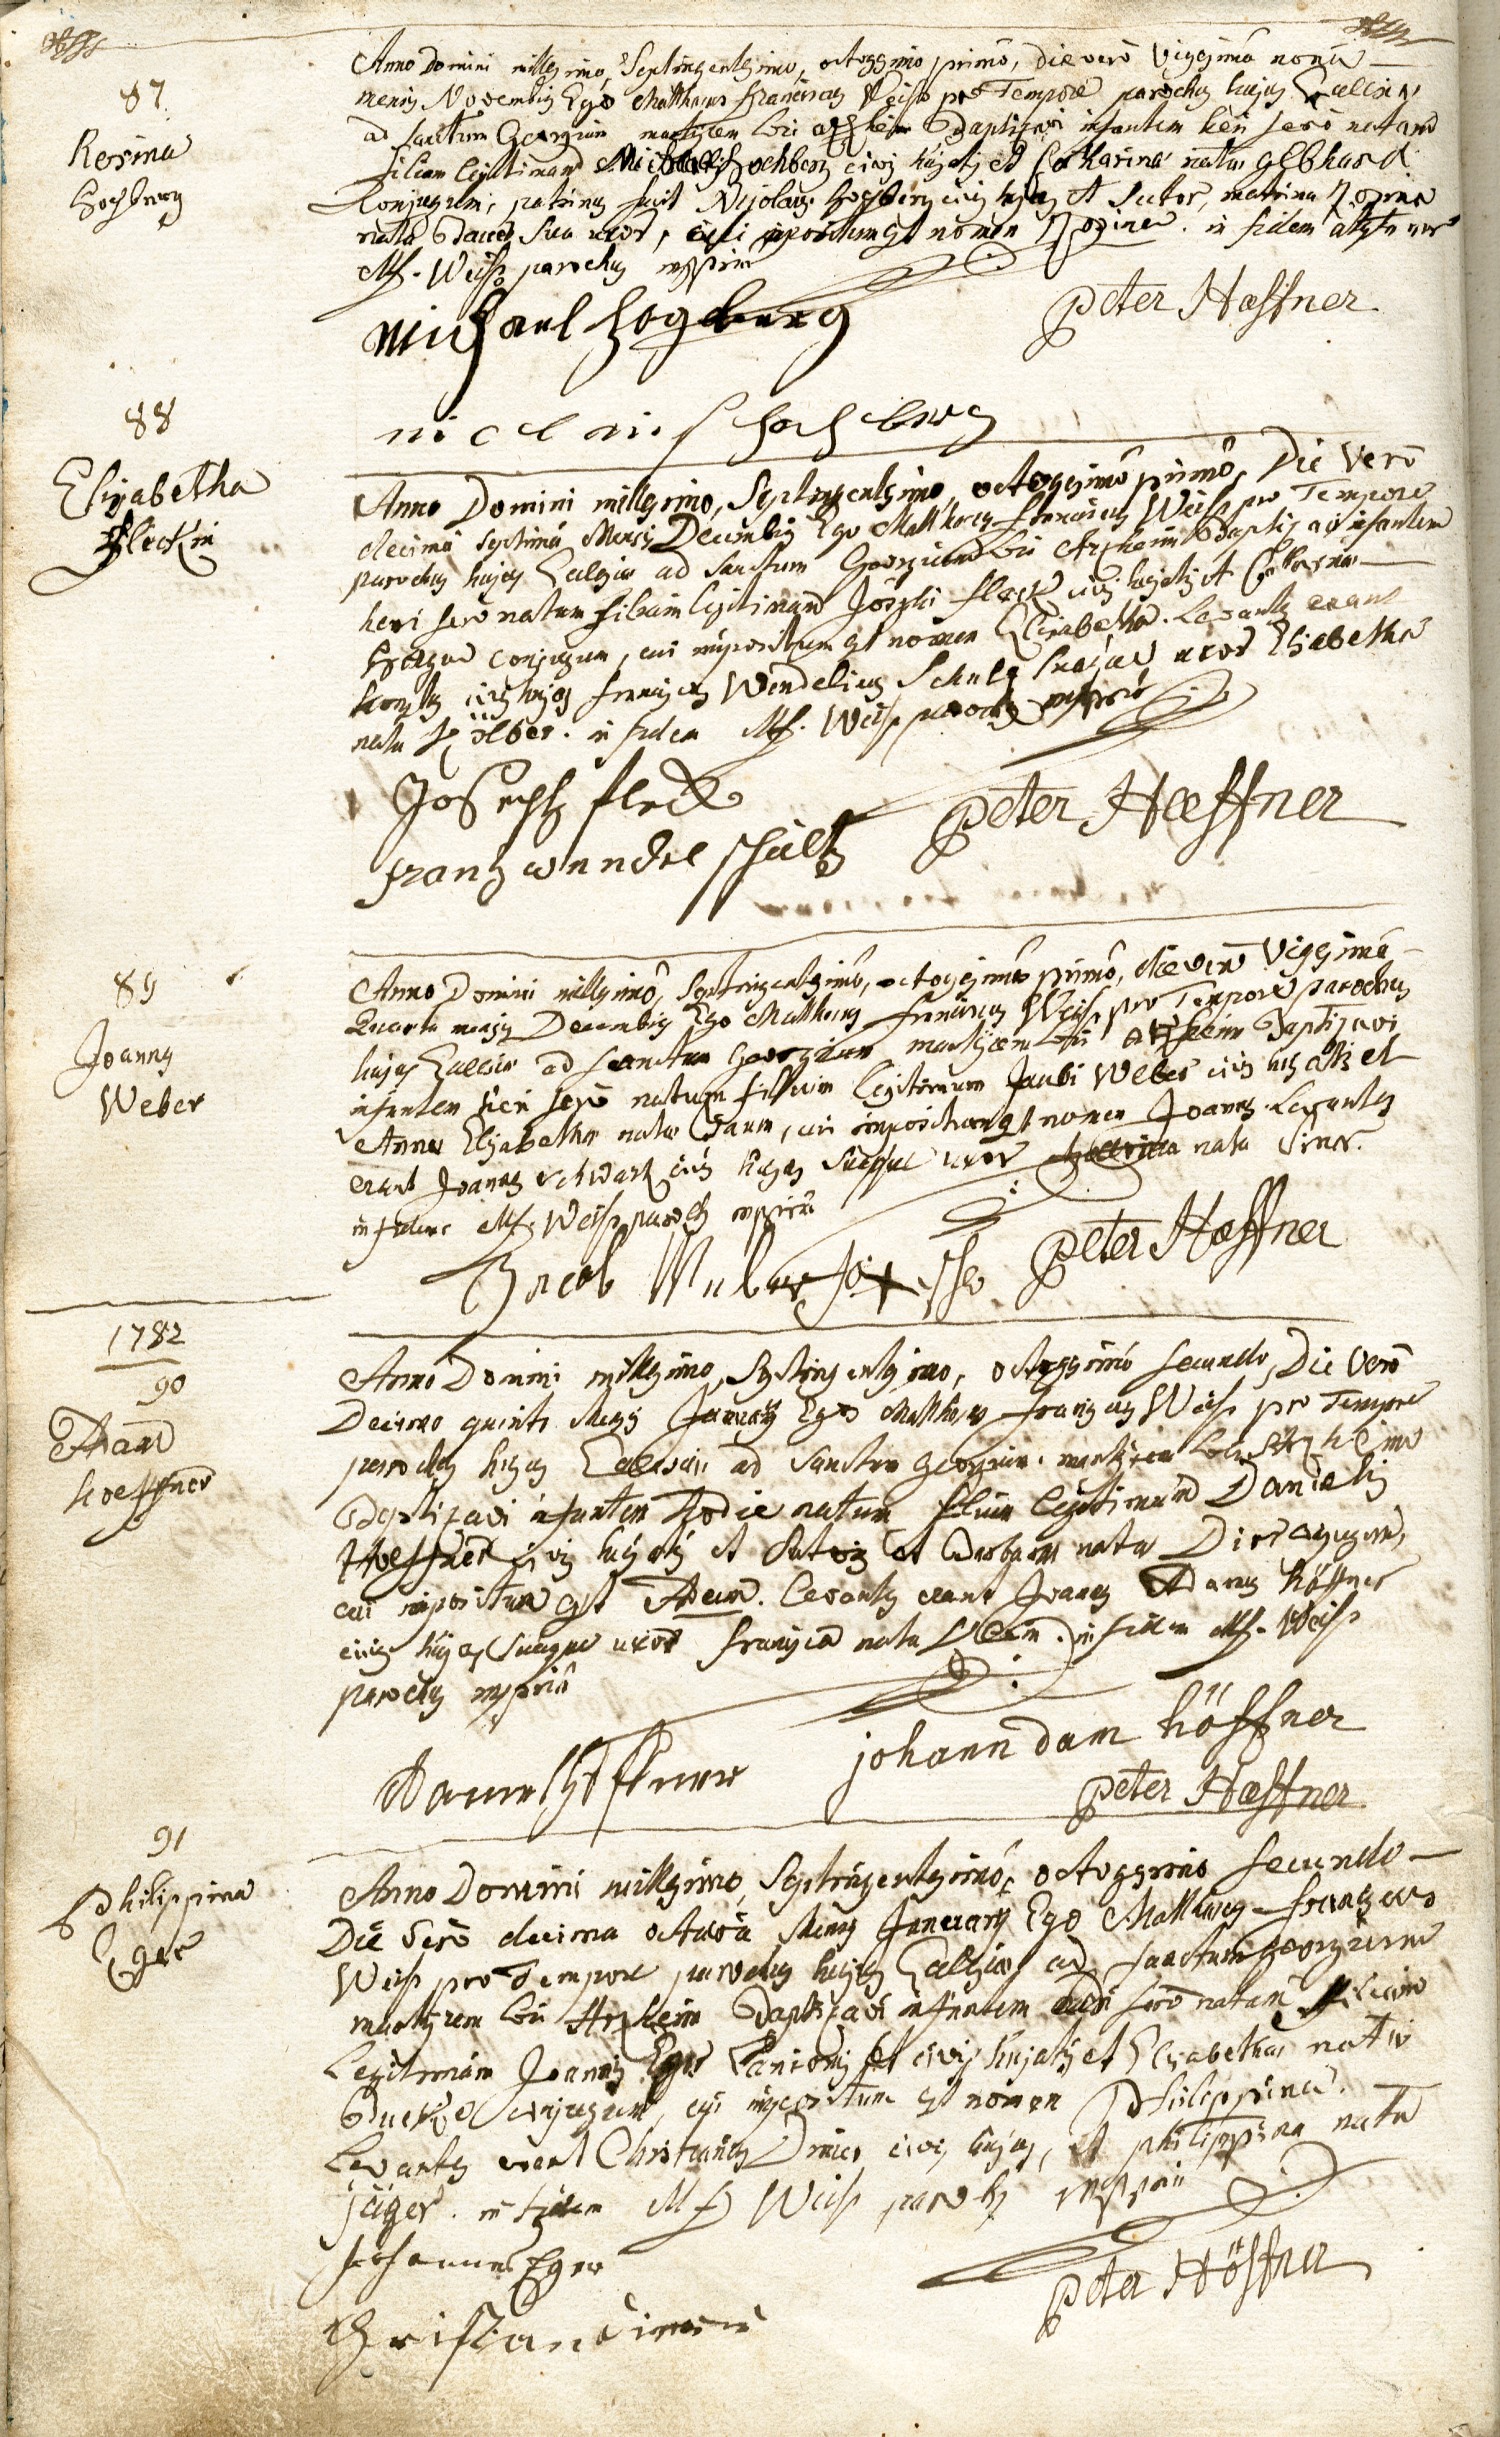 87
Rosina
Hochberg
Anno Domini millesimo, Septingentesimo, octogesimo primo, die vero vigesima nona
mensis Novembris Ego Matthaeus Franciscus Weiss pro Tempore parochus hujus Ecclesiae
ad sanctum Georgium martyrem loci Arzheim Baptizavi infantem heri sero natam
filiam legitimam Michaelis Hochberg civis hujatis et Catharinae natae Gebhard
Conjugum, patrinus fuit Nicolaus Hochberg civis hujas et sutor, matrina Rosina
nata sua uxor, cui impositum est nomen Rosina. in fidem
Mf. Weiss parochus mppria
Michael Hogberg
Peter Hoeffner
niclaus hochberg
88
Elisabetha
Fleckin
Anno Domini millesimo, Septingentesimo, octogesimo primo, Die Vero
decima septima Mensis Decembris Ego Matthaeus Franciscus Weiss pro Tempore
parochus hujus Ecclesiae ad Sanctum Georgium loci Arzheim Baptizavi infantem
heri sero natam filiam legitimam Josephi Fleck civis hujatis et Catharinae
conjugum, cui impositum est nomen Elisabetha. Levantes erant
civis hujas Franciscus Wendelinus Schulz suaque uxor Elisabetha
nata Kölber. in fidem Mf. Weiss parochus mppria
Joseph fleck
Peter Hoeffner
franz wendel schultz
89
Joannes
Weber
Anno Domini millesimo, Septingentesimo, octogesimo primo, die vero Vigesima
Quarta mensis Decembris Ego Matthaeus Franciscus Weiss pro Tempore parochus
hujus Ecclesiae ad sanctum Georgium martyrem loci Arzheim Baptizavi
infantem heri sero natum filium legitimum Jacobi Weber civis hujatis et
Anna Elisabetha nata, cui impositum est nomen Joannes. Levantes
erant Joannes Schwarz civis hujas suaque uxor nata
in fidem Mf. Weiss parochus mppria
Jacob Weber
Peter Hoeffner
1782
90
Adam
hoeffner
Anno Domini millesimo, Septingentesimo, octogesimo secundo, Die Vero
Decimo quinto Mensis Januarij Ego Matthaeus Franciscus Weiss pro Tempore
parochus hujus Ecclesiae ad Sanctum Georgium martyrem loci Arzheim
Baptizavi infantem hodie natum filium legitimum Danielis
Hoeffner civis hujatis et sutoris et Barbara nata conjugum,
cui impositum est Adam. Levantes erant Joannes Adamus Höffner
civis hujas suaque uxor Francisca nata. in fidem Mf. Weiss
parochus mppria
Daniel Höffner
johann dam höffner
Peter Hoeffner
91
Philippina
Eger
Anno Domini millesimo, Septingentesimo, octogesimo secundo
Die vero decima octava Mensis Januarij Ego Matthaeus Franciscus
Weiss pro Tempore parochus hujus Ecclesiae ad sanctum Georgium
martyrem loci Arzheim Baptizavi infantem heri sero natam filiam
Legitimam Joannis Eger Lanionis et civis hujatis et Elisabethae natae
conjugum, cui impositum est nomen Philippina.
Levantes erant Christianus civis hujas, et philippina nata
jäger. in fidem Mf Weiss parochus mppria
Johannes Eger
Peter Höffner
Christian